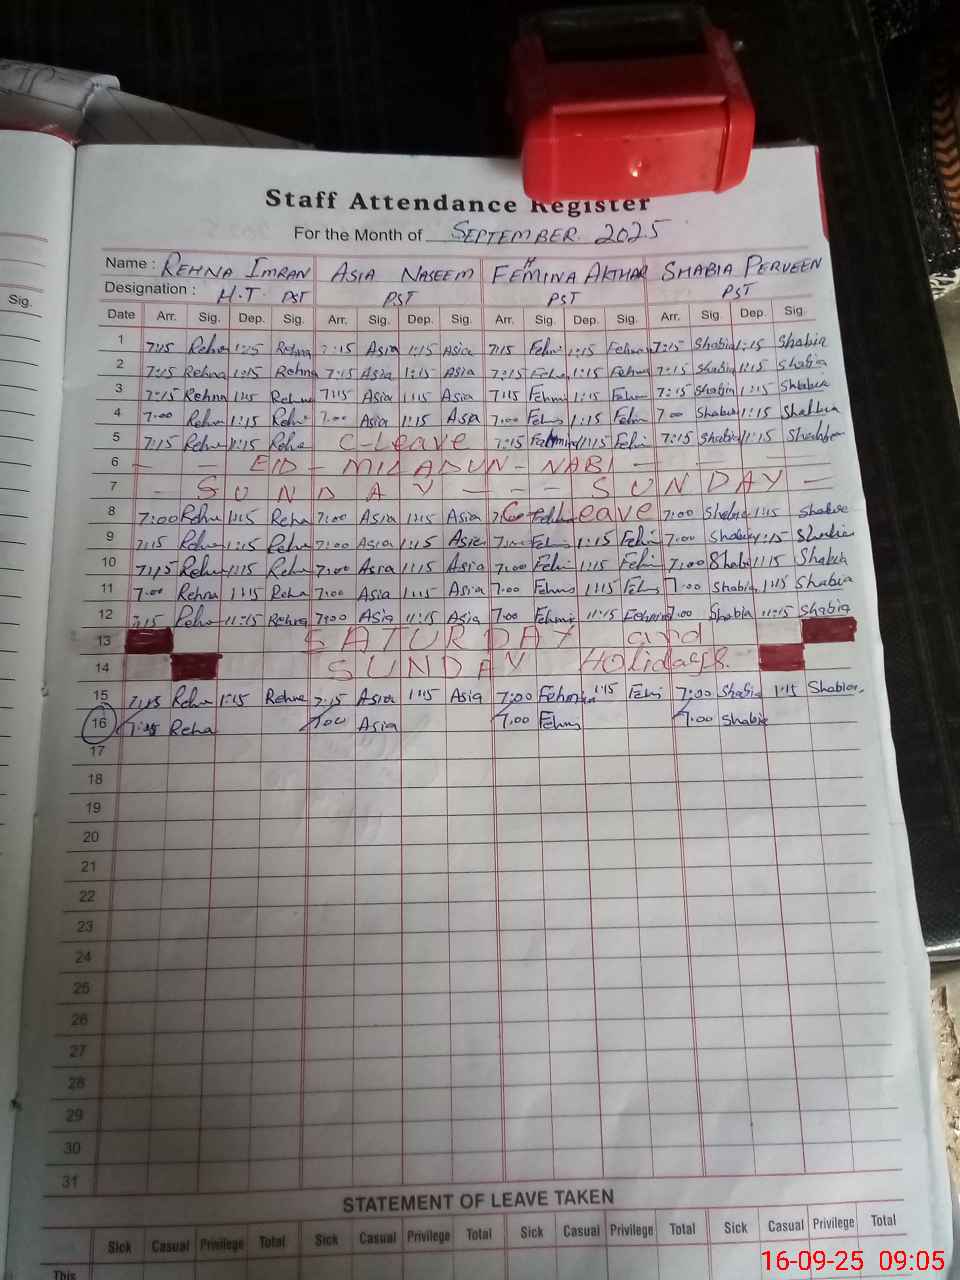 Staff Attendance Register
For the Month of SEPTEMBER 2025
Name : REHNA IMRAN ASIA NASEEM FEHMINA AKTHAR SHABIA PERVEEN
Designation : H.T. PST PST PST PST
Sig.
Date Arr. Sig. Dep. Sig. Arr. Sig. Dep. Sig. Arr. Sig. Dep. Sig. Arr. Sig Dep. Sig.
1 7:15 Rehna 1:15 Rehna 7:15 Asia 1:15 Asia 7:15 1:15 7:15 Shabia 1:15 Shabia
2 7:15 Rehna 1:15 Rehna 7:15 Asia 1:15 Asia 7:15 1:15 7:15 Shabia 1:15 Shabia
3 7:15 Rehna 1:15 7:15 Asia 1:15 Asia 7:15 1:15 7:15 Shabia 1:15 Shabia
4 7:00 1:15 7:00 Asia 1:15 Asia 7:00 1:15 7:00 1:15
5 7:15 1:15 C-Leave 7:15 1:15 7:15 Shabia 1:15
6 - - EID - MILADUN - NABI - - -
7 - SUNDAY - - - SUNDAY -
8 7:00 1:15 Reha 7:00 Asia 1:15 Asia C-Leave 7:00 1:15
9 7:15 1:15 7:00 Asia 1:15 Asia 7:00 1:15 7:00 1:15
10 7:15 1:15 7:00 Asia 1:15 Asia 7:00 1:15 7:00 1:15 Shabia
11 7:00 Rehna 1:15 Reha 7:00 Asia 1:15 Asia 7:00 1:15 7:00 Shabia 1:15 Shabia
12 7:15 11:15 Rehna 7:00 Asia 11:15 Asia 7:00 11:15 7:00 Shabia 11:15 Shabia
13 SATURDAY and
14 SUNDAY Holidays.
15 7:15 1:15 7:15 Asia 1:15 Asia 7:00 1:15 7:00 Shabia 1:15 Shabia
16 Reha 7:00 Asia 7:00 7:00 Shabia
17
18
19
20
21
22
23
24
25
26
27
28
29
30
31
STATEMENT OF LEAVE TAKEN
Sick Casual Privilege Total Sick Casual Privilege Total Sick Casual Privilege Total Sick Casual Privilege Total
This
16-09-25 09:05